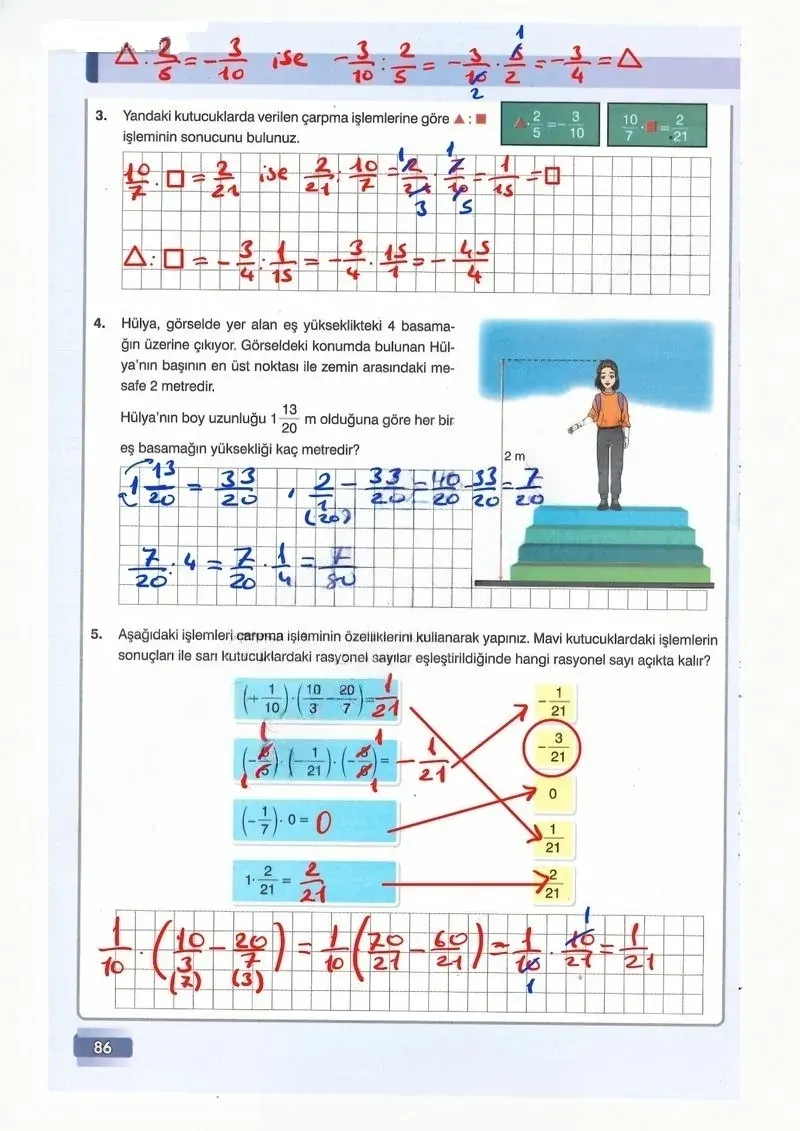 △ · 2/5 = - 3/10 ise - 3/10 : 2/5 = - 3/10 · 5/2 = - 3/4 = △
1
2
3. Yandaki kutucuklarda verilen çarpma işlemlerine göre ▲ : ■
işleminin sonucunu bulunuz.
▲ · 2/5 = - 3/10
10/7 · ■ = 2/21
10/7 · □ = 2/21 ise 2/21 : 10/7 = 2/21 · 7/10 = 1/15 = □
1 1
3 5
△ : □ = - 3/4 : 1/15 = - 3/4 · 15/1 = - 45/4
4. Hülya, görselde yer alan eş yükseklikteki 4 basama-
ğın üzerine çıkıyor. Görseldeki konumda bulunan Hül-
ya'nın başının en üst noktası ile zemin arasındaki me-
safe 2 metredir.
Hülya'nın boy uzunluğu 1 13/20 m olduğuna göre her bir
eş basamağın yüksekliği kaç metredir?
2 m
1 13/20 = 33/20 , 2/1 - 33/20 = 40/20 - 33/20 = 7/20
(20)
7/20 : 4 = 7/20 · 1/4 = 7/80
5. Aşağıdaki işlemleri çarpma işleminin özelliklerini kullanarak yapınız. Mavi kutucuklardaki işlemlerin
sonuçları ile sarı kutucuklardaki rasyonel sayılar eşleştirildiğinde hangi rasyonel sayı açıkta kalır?
(+ 1/10) · (10/3 - 20/7) = 1/21
- 1/21
1 1
(- ) · (- 1/21) · (- 8/8) = - 1/21
1 1
- 3/21
(- 1/7) · 0 = 0
0
1/21
1 · 2/21 = 2/21
2/21
1/10 · (10/3 - 20/7) = 1/10 (70/21 - 60/21) = 1/10 · 10/21 = 1/21
(7) (3)
1
1
86